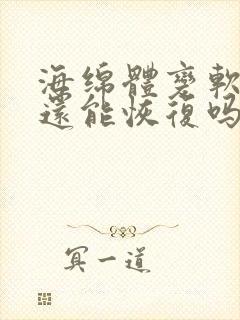 海绵體变軟
還能恢復吗
冥一道